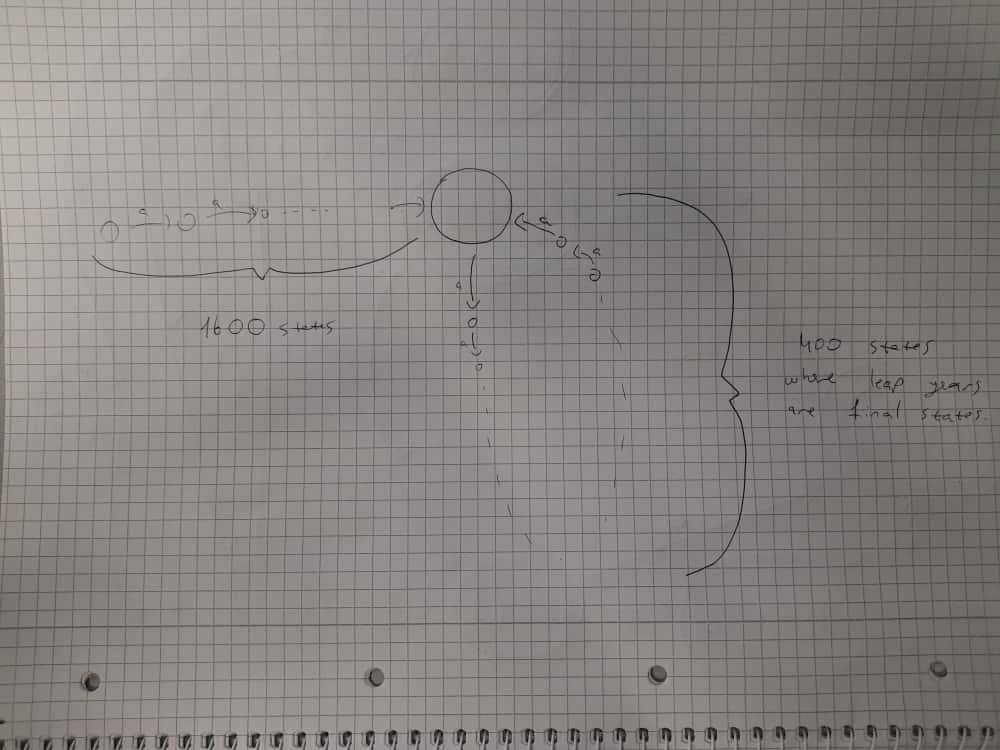 a a
a
a
a
a
1600 states
400 states
where leap years
are final states.